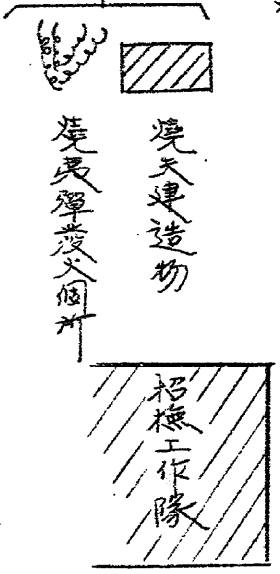 燒失建造物
燒夷彈發火個所
招撫工作隊